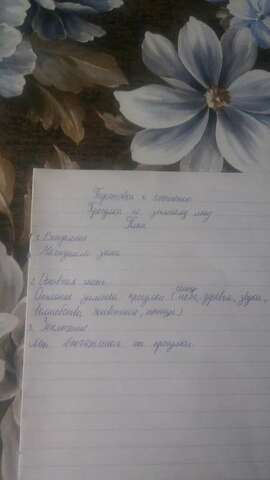 Подготовка к сочинению
Прогулка по зимнему лесу
План
1. Вступление
Наступила зима
2. Основная часть
Описание зимней прогулки (снег, небо, деревья, звуки,
животные, птицы)
3. Заключение
Мои впечатления от прогулки.